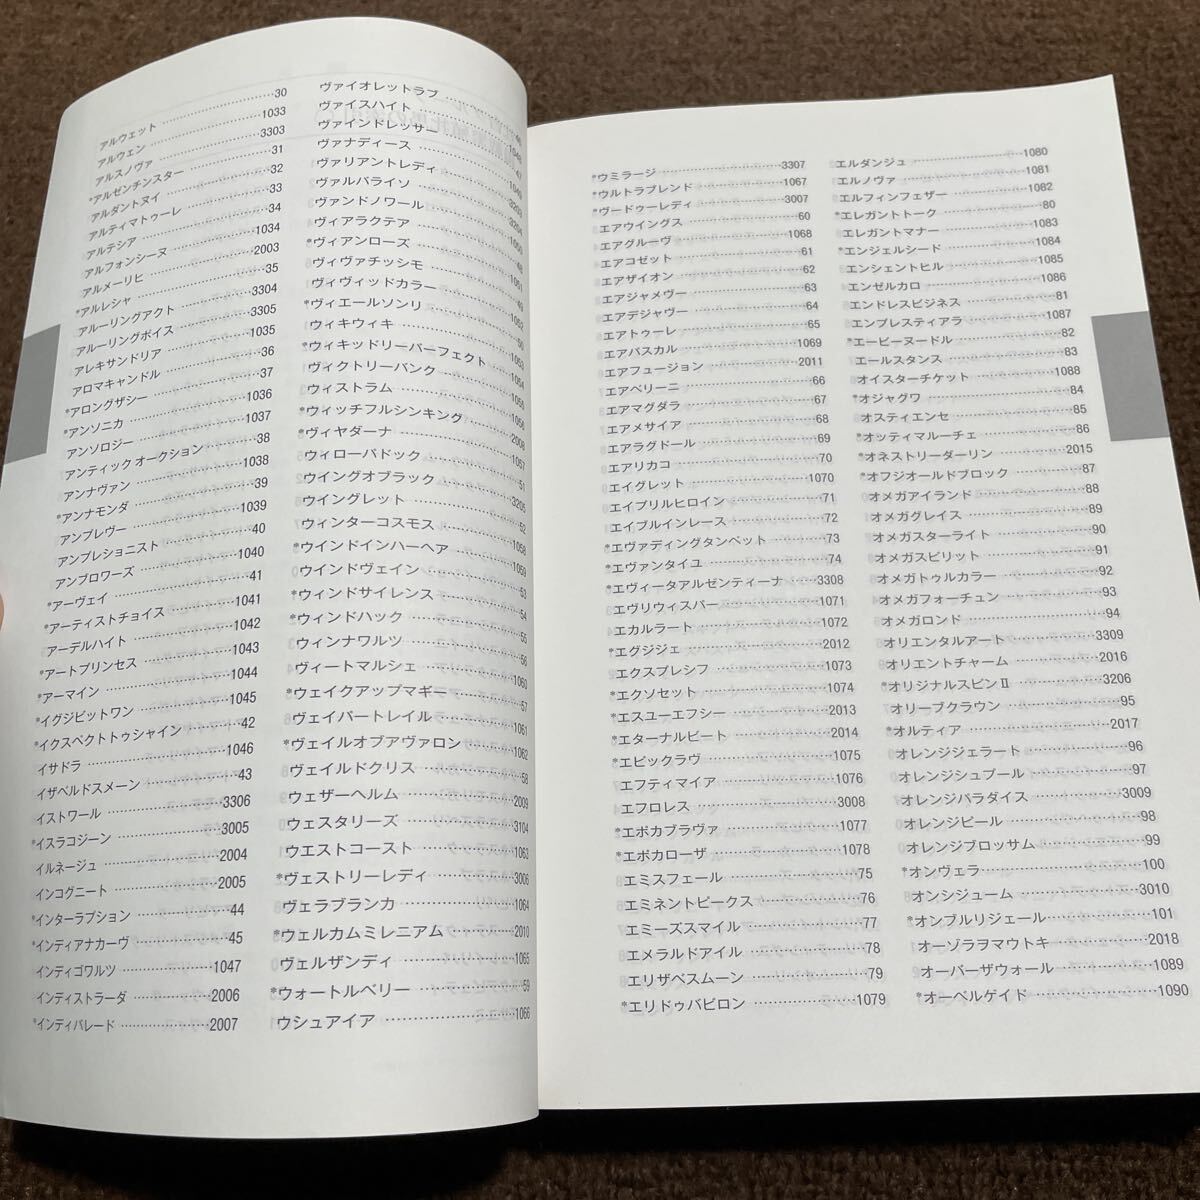 アルウェット……30
アルウェン……1033
アルスノヴァ……3303
*アルゼンチンスター……31
アルダントヌイ……32
アルティマトゥーレ……33
アルテシア……34
アルフォンシーヌ……1034
アルメーリヒ……2003
*アルレシャ……35
アルーリングアクト……3304
アルーリングボイス……3305
アレキサンドリア……1035
アロマキャンドル……36
*アロングザシー……37
*アンソニカ……1036
アンソロジー……1037
アンティック オークション……38
アンナヴァン……1038
*アンナモンダ……39
アンプレヴー……1039
アンプレショニスト……40
アンブロワーズ……1040
*アーヴェイ……41
*アーティストチョイス……1041
アーデルハイト……1042
*アートプリンセス……1043
*アーマイン……1044
*イグジビットワン……1045
*イクスペクトトゥシャイン……42
イサドラ……1046
イザベルドスメーン……43
イストワール……3306
*イスラコジーン……3005
イルネージュ……2004
インコグニート……2005
*インターラプション……44
*インディアナカーヴ……45
インディゴワルツ……1047
インディストラーダ……2006
*インディパレード……2007
ヴァイオレットラブ……46
ヴァイスハイト……
ヴァインドレッサー……1048
ヴァナディース……47
ヴァリアントレディ……1049
ヴァルバライソ……3203
ヴァンドノワール……3204
ヴィアラクテア……1050
*ヴィアンローズ……48
ヴィヴァチッシモ……1051
ヴィヴィッドカラー……49
*ヴィエールソンリ……1052
ウィキウィキ……50
*ウィキッドリーパーフェクト……1053
ヴィクトリーバンク……1054
ウィストラム……1055
*ウィッチフルシンキング……1056
*ヴィヤダーナ……2008
ウィローパドック……1057
ウイングオブラック……51
ウイングレット……3205
ウィンターコスモス……52
*ウインドインハーヘア……1058
ウインドヴェイン……1059
*ウィンドサイレンス……53
*ウィンドハック……54
ウィンナワルツ……55
ヴィートマルシェ……56
*ウェイクアップマギー……1060
ヴェイパートレイル……57
*ヴェイルオブアヴァロン……1061
ヴェイルドクリス……1062
ウェザーヘルム……58
ウェスタリーズ……2009
ウエストコースト……3104
*ヴェストリーレディ……1063
ヴェラブランカ……3006
*ウェルカムミレニアム……1064
ヴェルザンディ……2010
*ウォートルベリー……1065
ウシュアイア……59
1066
*ウミラージ……3307
*ウルトラブレンド……1067
*ヴードゥーレディ……3007
エアウイングス……60
エアグルーヴ……1068
エアコゼット……61
エアザイオン……62
エアジャメヴー……63
エアデジャヴー……64
エアトゥーレ……65
エアパスカル……1069
エアフュージョン……2011
エアペリーニ……66
エアマグダラ……67
エアメサイア……68
エアラグドール……69
エアリカコ……70
エイグレット……1070
エイプリルヒロイン……71
エイブルインレース……72
*エヴァディングタンペット……73
エヴァンタイユ……74
*エヴィータアルゼンティーナ……3308
エヴリウィスパー……1071
エカルラート……1072
*エグジジェ……2012
エクスプレシフ……1073
*エクソセット……1074
*エスユーエフシー……2013
*エターナルビート……2014
*エピックラヴ……1075
エフティマイア……1076
エフロレス……3008
*エポカブラヴァ……1077
*エポカローザ……1078
エミスフェール……75
エミネントピークス……76
エミーズスマイル……77
エメラルドアイル……78
エリザベスムーン……79
*エリドゥバビロン……1079
エルダンジュ……1080
エルノヴァ……1081
エルフィンフェザー……1082
*エレガントトーク……80
エレガントマナー……1083
*エンジェルシード……1084
エンシェントヒル……1085
エンゼルカロ……1086
エンドレスビジネス……81
エンプレスティアラ……1087
*エービーヌードル……82
エールスタンス……83
オイスターチケット……1088
*オジャグワ……84
オスティエンセ……85
*オッティマルーチェ……86
*オネストリーダーリン……2015
*オフジオールドブロック……87
オメガアイランド……88
オメガグレイス……89
オメガスターライト……90
オメガスピリット……91
オメガトゥルカラー……92
オメガフォーチュン……93
オメガロンド……94
オリエンタルアート……3309
オリエントチャーム……2016
*オリジナルスピンⅡ……3206
オリーブクラウン……95
*オルティア……2017
オレンジジェラート……96
オレンジシュプール……97
オレンジパラダイス……3009
オレンジピール……98
オレンジブロッサム……99
*オンヴェラ……100
オンシジューム……3010
*オンブルリジェール……101
オーゾラヲマウトキ……2018
オーバーザウォール……1089
*オーベルゲイド……1090